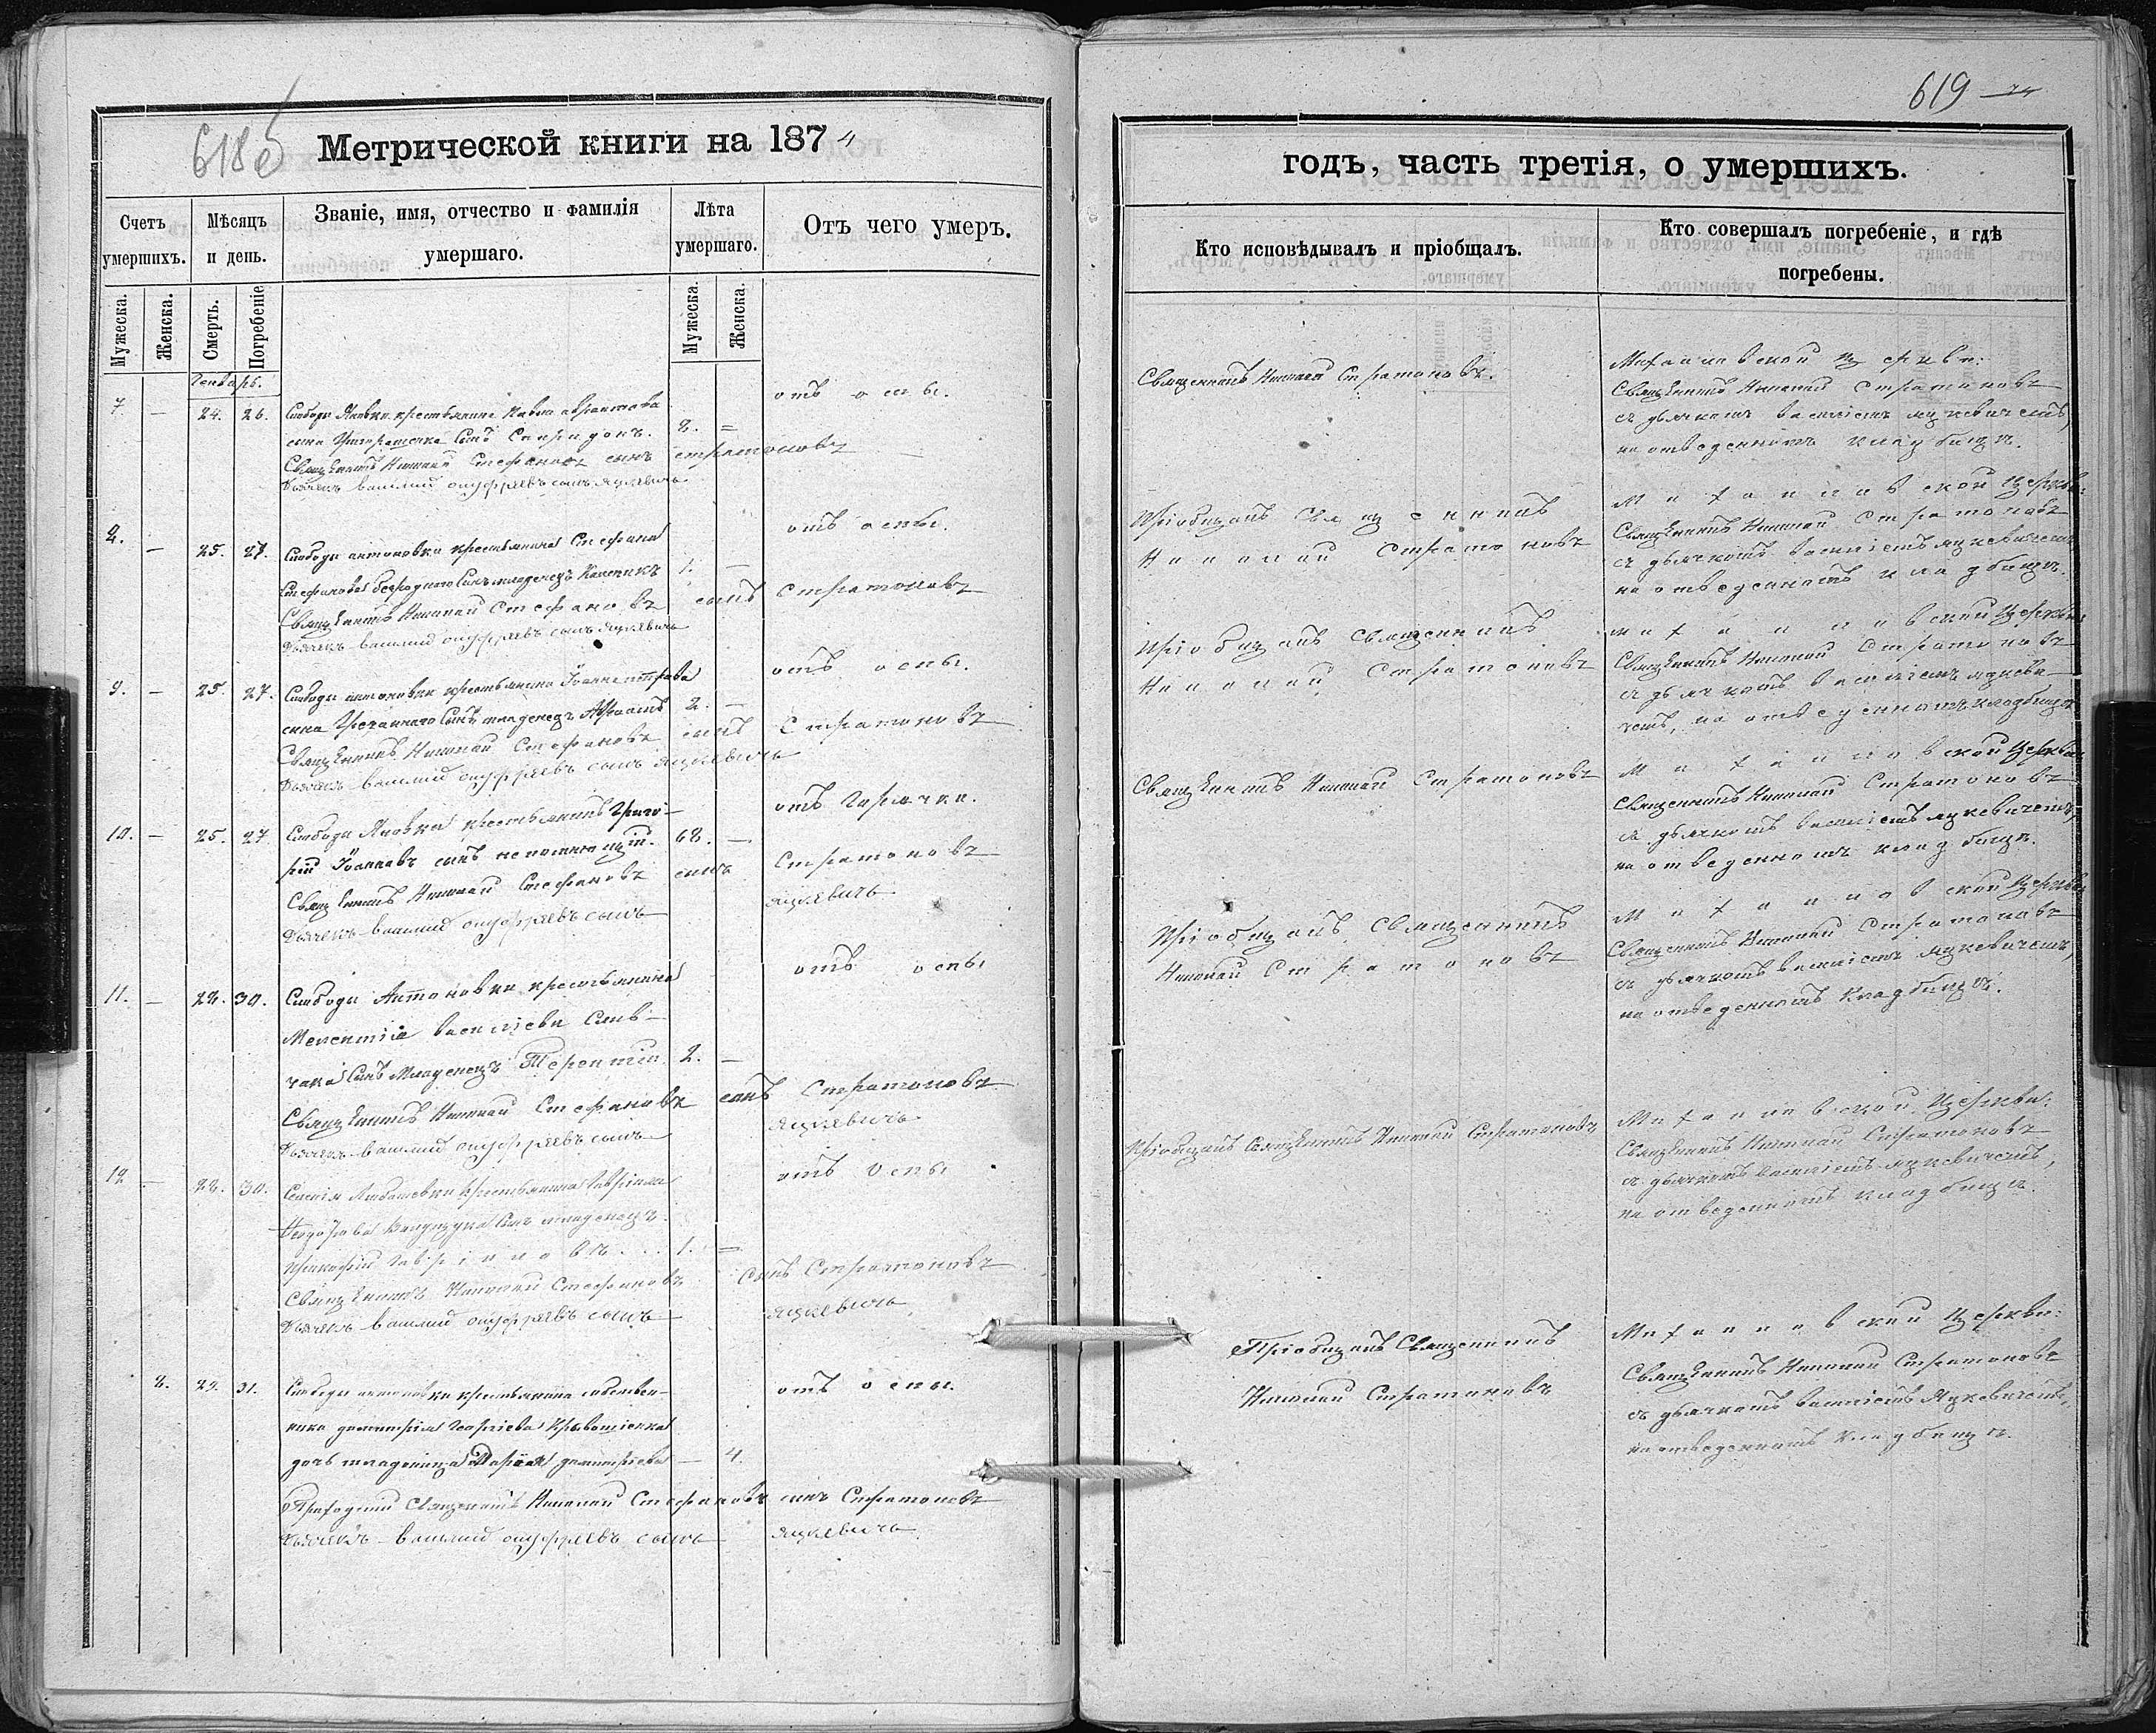 618об
Метрической книги на 1874
Счетъ умершихъ.
Мѣсяцъ и день.
Званіе, имя, отчество и фамилія умершаго.
Лѣта умершаго.
Отъ чего умеръ.
Мужеска.
Женска.
Смерть.
Погребеніе
Мужеска.
Женска.
Генварь.
7 — 24. 26. Слободы Яновки крестьянина Павла
сынъ Спиридонъ. 8. = отъ оспы.
Священникъ Николай Стефановъ сынъ Стратоновъ
Дьячекъ Василий Онуфріевъ сынъ Яцкевичь
8. — 25. 27. Слободы Антоновки крестьянина Стефана отъ оспы.
Стефанова сынъ младенецъ 1. —
Священникъ Николай Стефановъ сынъ Стратоновъ
Дьячекъ Василий Онуфріевъ сынъ Яцкевичь
9. — 25. 27. Слободы Антоновки крестьянина Іоанна отъ оспы.
сынъ младенецъ 2. —
Священникъ Николай Стефановъ сынъ Стратоновъ
Дьячекъ Василий Онуфріевъ сынъ Яцкевичь
10. — 25. 27 Слободы Яновки крестьянинъ Григо- отъ горячки.
рій Іоанновъ сынъ 68. —
Священникъ Николай Стефановъ сынъ Стратоновъ
Дьячекъ Василий Онуфріевъ сынъ Яцкевичь
11. — 28. 30. Слободы Антоновки крестьянина отъ оспы
Мелентія Василіева Слив-
чака сынъ младенецъ Терентій 2. —
Священникъ Николай Стефановъ сынъ Стратоновъ
Дьячекъ Василий Онуфріевъ сынъ Яцкевичь
12 — 28. 30. крестьянина Гавріила отъ оспы
сынъ младенецъ
Прокофій Гавріиловъ... 1. —
Священникъ Николай Стефановъ сынъ Стратоновъ
Дьячекъ Василий Онуфріевъ сынъ Яцкевичь
8. 29. 31. Слободы Антоновки крестьянина собствен- отъ оспы.
ника Димитрія Георгіева
дочь младеница Марія Димитріева — 4.
Приходскій Священникъ Николай Стефановъ сынъ Стратоновъ
Дьячекъ Василий Онуфріевъ сынъ Яцкевичь
619
годъ, часть третія, о умершихъ.
Кто исповѣдывалъ и пріобщалъ.
Кто совершалъ погребеніе, и гдѣ погребены.
Священникъ Николай Стратоновъ.
Михаиловской церкви:
Священникъ Николай Стратоновъ
съ дьячкомъ Василіемъ Яцкевичемъ,
на отведенномъ кладбищѣ.
Пріобщалъ Священникъ
Николай Стратоновъ
Михаиловской церкви:
Священникъ Николай Стратоновъ
съ дьячкомъ Василіемъ Яцкевичемъ
на отведенномъ кладбищѣ.
Пріобщалъ Священникъ
Николай Стратоновъ
Михаиловской церкви:
Священникъ Николай Стратоновъ
съ дьячкомъ Василіемъ Яцкеви-
чемъ, на отведенномъ кладбищѣ
Священникъ Николай Стратоновъ
Михаиловской церкви
Священникъ Николай Стратоновъ
съ дьячкомъ Василіемъ Яцкевичемъ,
на отведенномъ кладбищѣ.
Пріобщалъ Священникъ
Николай Стратоновъ
Михаиловской церкви
Священникъ Николай Стратоновъ
съ дьячкомъ Василіемъ Яцкевичемъ,
на отведенномъ кладбищѣ.
Пріобщалъ Священникъ Николай Стратоновъ
Михаиловской церкви:
Священникъ Николай Стратоновъ
съ дьячкомъ Василіемъ Яцкевичемъ,
на отведенномъ кладбищѣ.
Пріобщалъ Священникъ
Николай Стратоновъ
Михаиловской церкви:
Священникъ Николай Стратоновъ
съ дьячкомъ Василіемъ Яцкевичемъ,
на отведенномъ кладбищѣ.